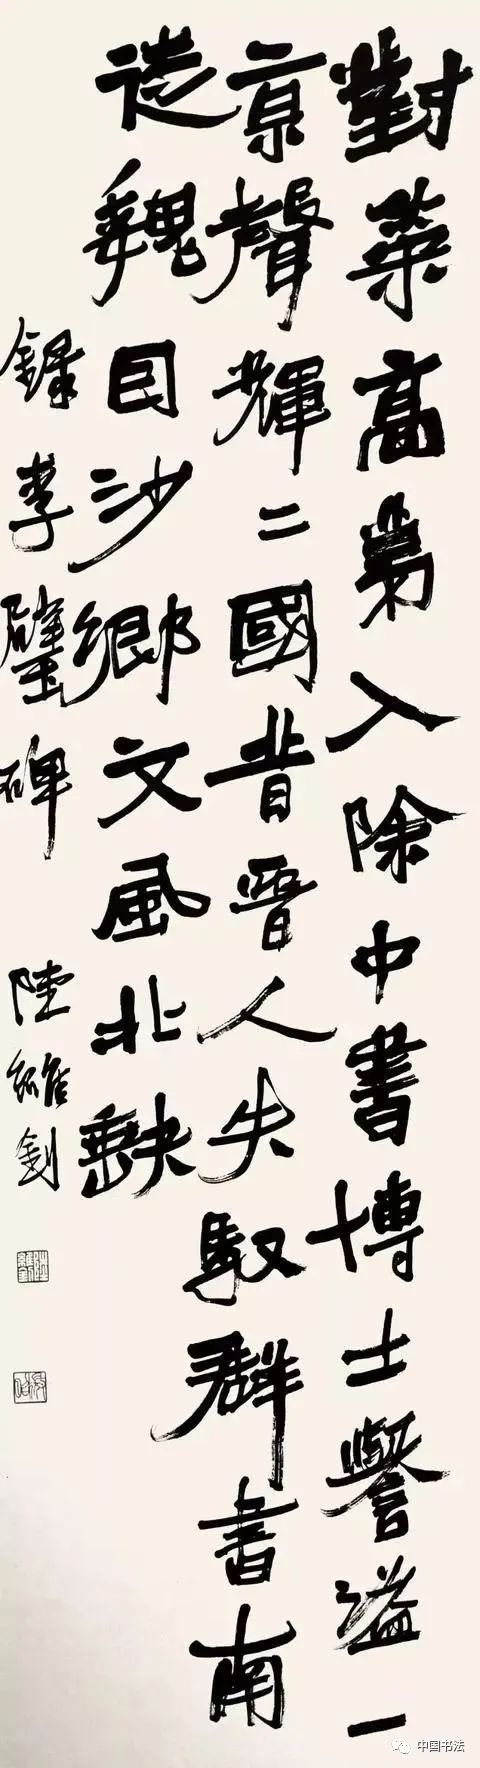 對策高第入除中書博士譽溢一
京聲輝二國昔晉人失馭群書南
徙魏因沙鄉文風北缺
錄李璧碑 陸維釗
中国书法